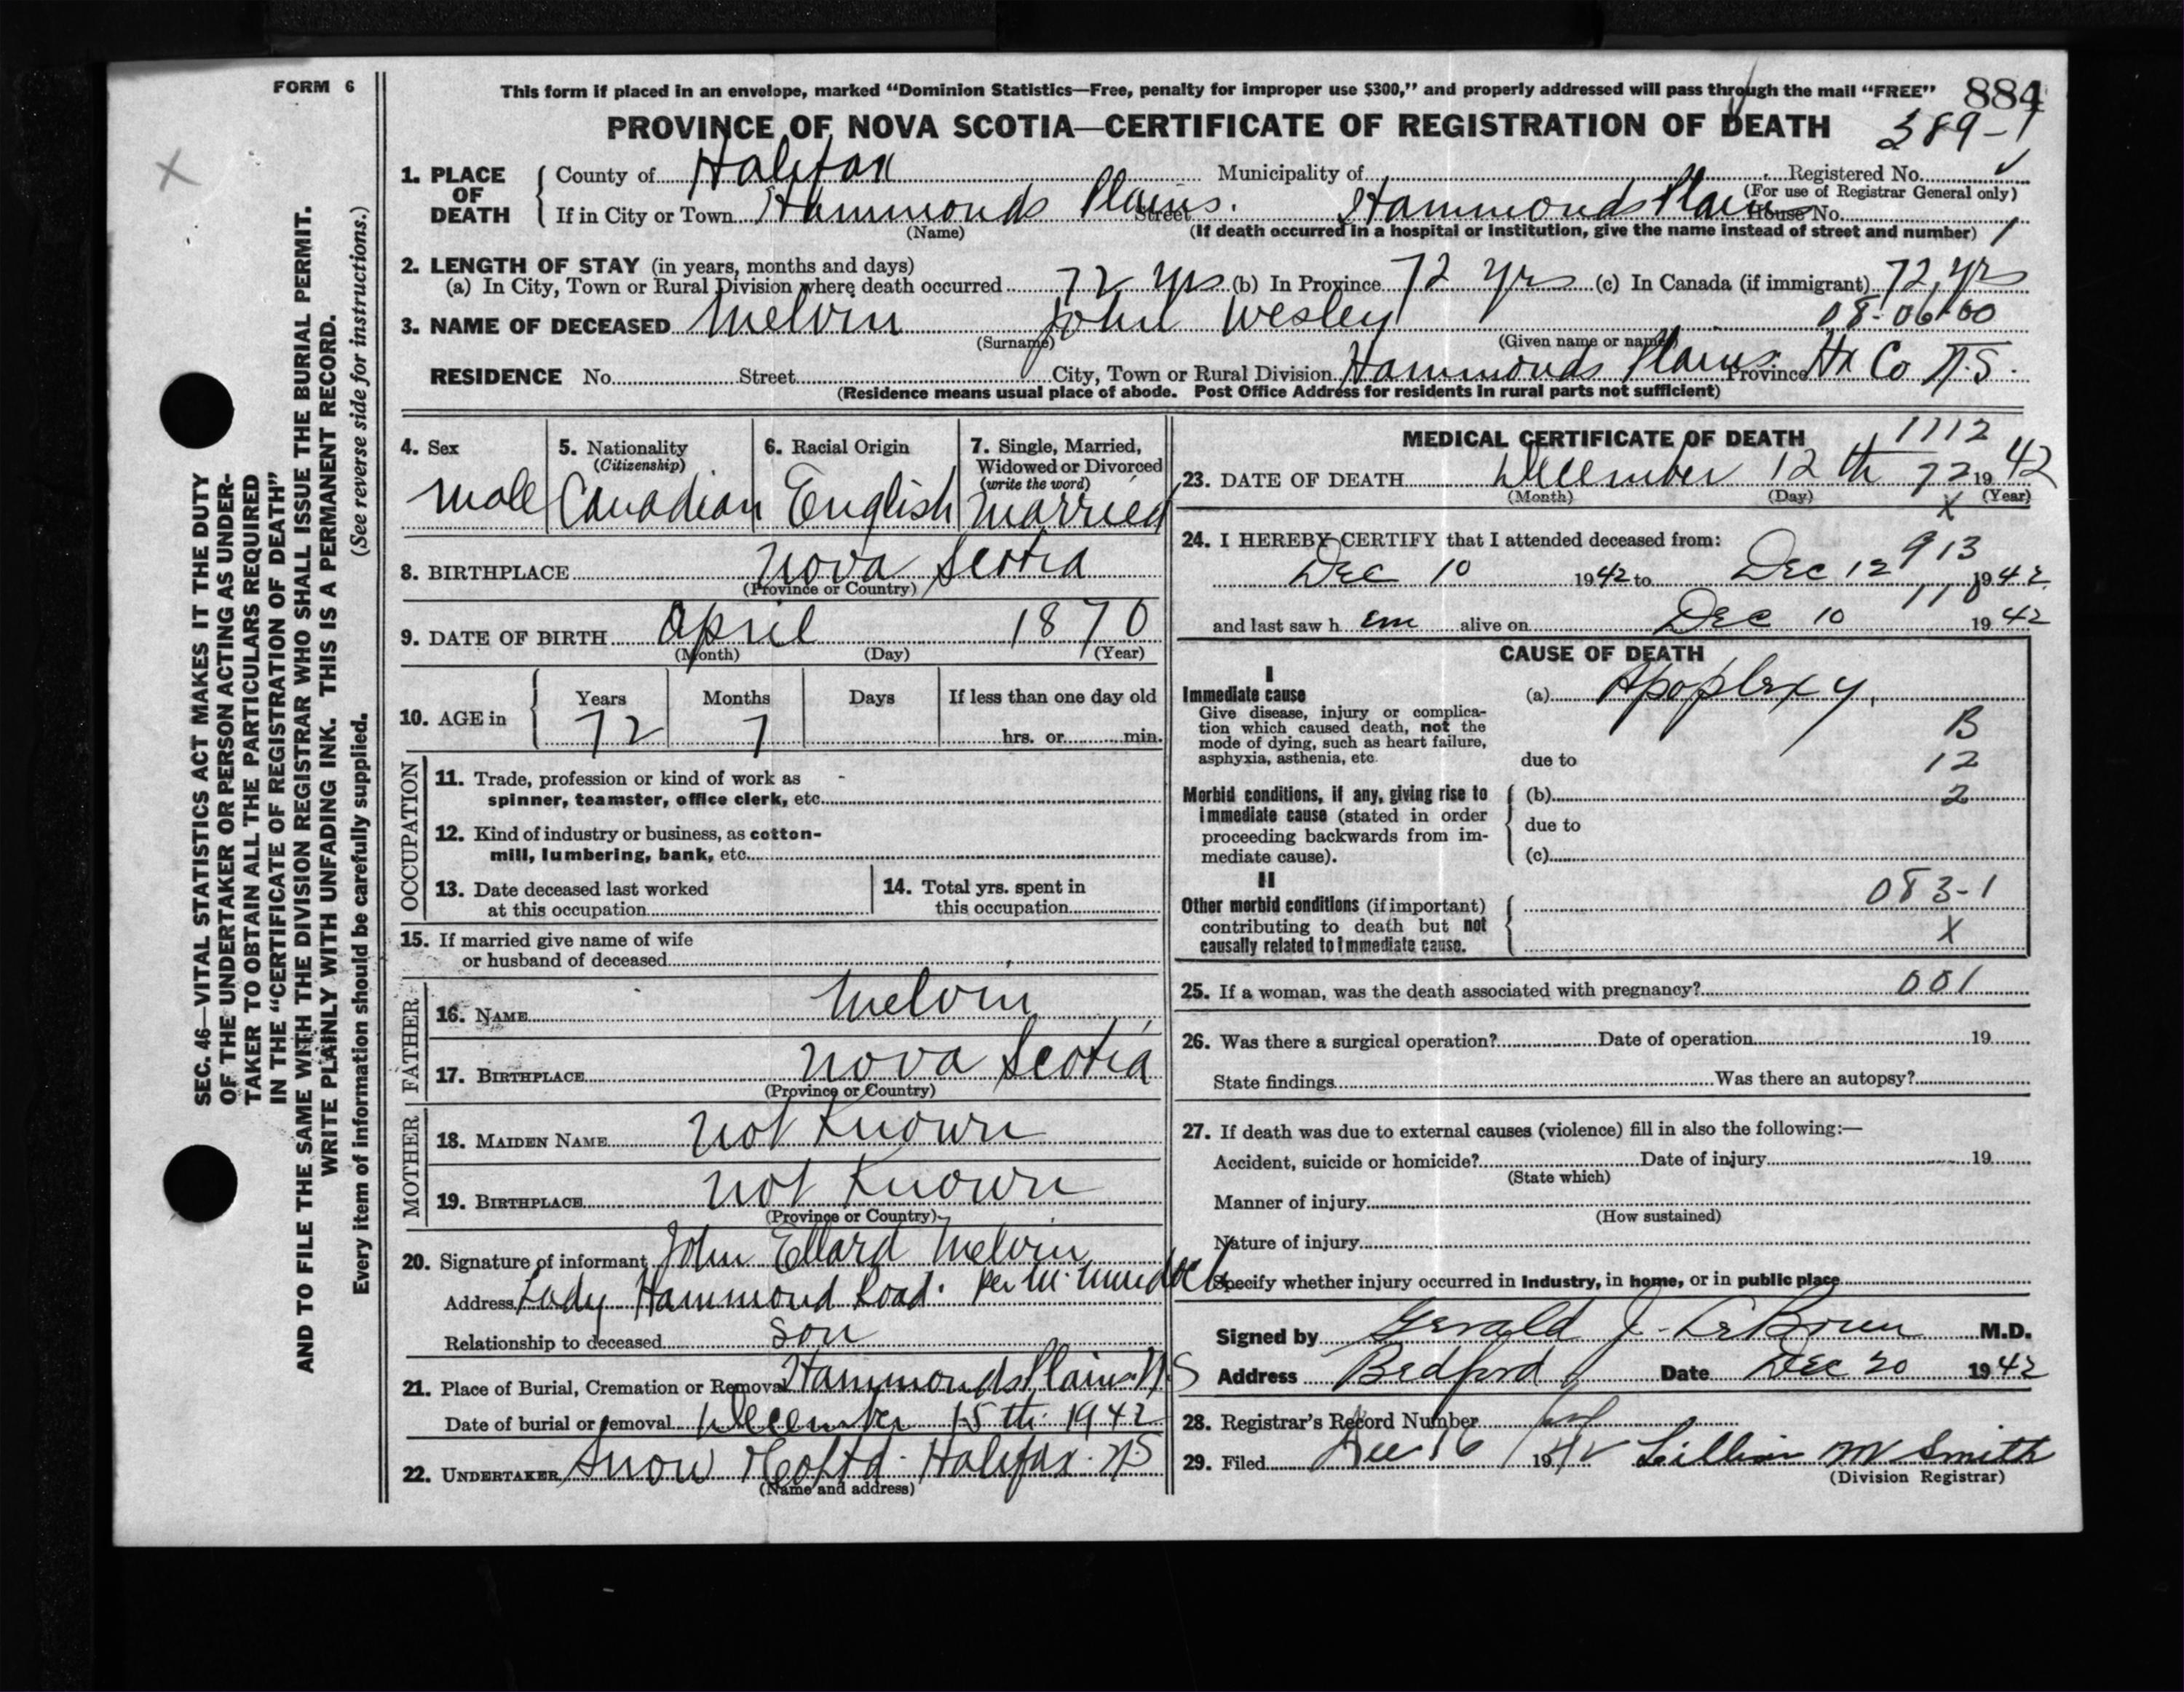 FORM 6
This form if placed in an envelope, marked "Dominion Statistics—Free, penalty for improper use $300," and properly addressed will pass through the mail "FREE"
884
PROVINCE OF NOVA SCOTIA—CERTIFICATE OF REGISTRATION OF DEATH
389-1
1. PLACE OF DEATH
County of Halifax Municipality of Registered No.
(For use of Registrar General only)
If in City or Town Hammonds Plains. Street Hammonds Plains House No.
(Name) (If death occurred in a hospital or institution, give the name instead of street and number) 1
2. LENGTH OF STAY (in years, months and days)
(a) In City, Town or Rural Division where death occurred 72 yrs (b) In Province 72 yrs (c) In Canada (if immigrant) 72 yrs
08-06-00
3. NAME OF DECEASED Melvin John Wesley
(Surname) (Given name or names)
RESIDENCE No. Street City, Town or Rural Division Hammonds Plains Province Hx Co N.S.
(Residence means usual place of abode. Post Office Address for residents in rural parts not sufficient)
4. Sex
male
5. Nationality
(Citizenship)
Canadian
6. Racial Origin
English
7. Single, Married, Widowed or Divorced
(write the word)
Married
8. BIRTHPLACE Nova Scotia
(Province or Country)
9. DATE OF BIRTH April 1870
(Month) (Day) (Year)
10. AGE in
Years Months Days If less than one day old
72 7 hrs. or min.
OCCUPATION
11. Trade, profession or kind of work as
spinner, teamster, office clerk, etc.
12. Kind of industry or business, as cotton-
mill, lumbering, bank, etc.
13. Date deceased last worked
at this occupation
14. Total yrs. spent in
this occupation
15. If married give name of wife
or husband of deceased
FATHER
16. NAME Melvin
17. BIRTHPLACE Nova Scotia
(Province or Country)
MOTHER
18. MAIDEN NAME not known
19. BIRTHPLACE not known
(Province or Country)
20. Signature of informant John Ellard Melvin
Address Lady Hammond Road. Per M. Murdock
Relationship to deceased son
21. Place of Burial, Cremation or Removal Hammonds Plains NS
Date of burial or removal December 15th 1942
22. UNDERTAKER Snow & Co Ltd. Halifax. NS
(Name and address)
MEDICAL CERTIFICATE OF DEATH
1112
23. DATE OF DEATH December 12th 72 1942
(Month) (Day) (Year)
X
24. I HEREBY CERTIFY that I attended deceased from:
913
Dec 10 1942 to Dec 12 1942
110
and last saw h em alive on Dec 10 1942
CAUSE OF DEATH
I
Immediate cause
Give disease, injury or complica-
tion which caused death, not the
mode of dying, such as heart failure,
asphyxia, asthenia, etc.
(a) Apoplexy,
B
due to 12
Morbid conditions, if any, giving rise to
immediate cause (stated in order
proceeding backwards from im-
mediate cause).
(b) 2
due to
(c)
II
Other morbid conditions (if important)
contributing to death but not
causally related to immediate cause.
083-1
X
25. If a woman, was the death associated with pregnancy? 001
26. Was there a surgical operation? Date of operation 19
State findings Was there an autopsy?
27. If death was due to external causes (violence) fill in also the following:—
Accident, suicide or homicide? Date of injury 19
(State which)
Manner of injury
(How sustained)
Nature of injury
Specify whether injury occurred in Industry, in home, or in public place
Signed by Gerald J. LeBrun M.D.
Address Bedford Date Dec 20 1942
28. Registrar's Record Number
29. Filed Dec 16 1942 Lillian M Smith
(Division Registrar)
SEC. 46—VITAL STATISTICS ACT MAKES IT THE DUTY
OF THE UNDERTAKER OR PERSON ACTING AS UNDER-
TAKER TO OBTAIN ALL THE PARTICULARS REQUIRED
IN THE "CERTIFICATE OF REGISTRATION OF DEATH"
AND TO FILE THE SAME WITH THE DIVISION REGISTRAR WHO SHALL ISSUE THE BURIAL PERMIT.
WRITE PLAINLY WITH UNFADING INK. THIS IS A PERMANENT RECORD.
Every item of information should be carefully supplied. (See reverse side for instructions.)
X